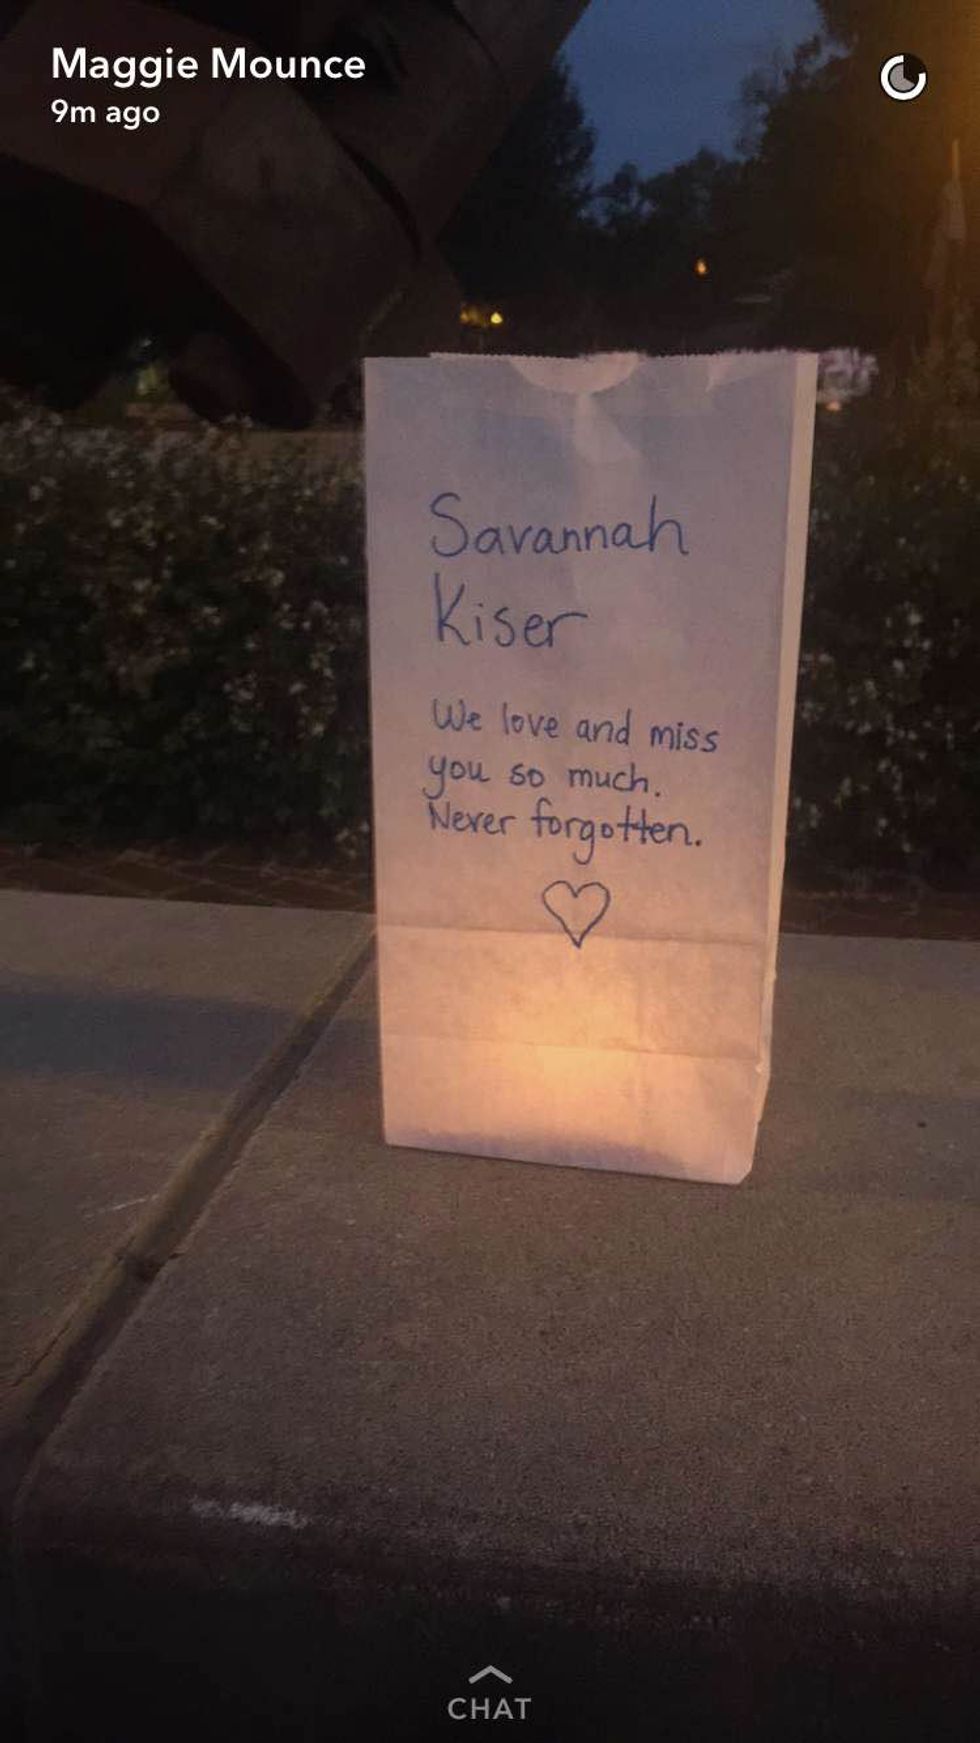 Maggie Mounce
9m ago
Savannah
Kiser
We love and miss
you so much.
Never forgotten.
CHAT